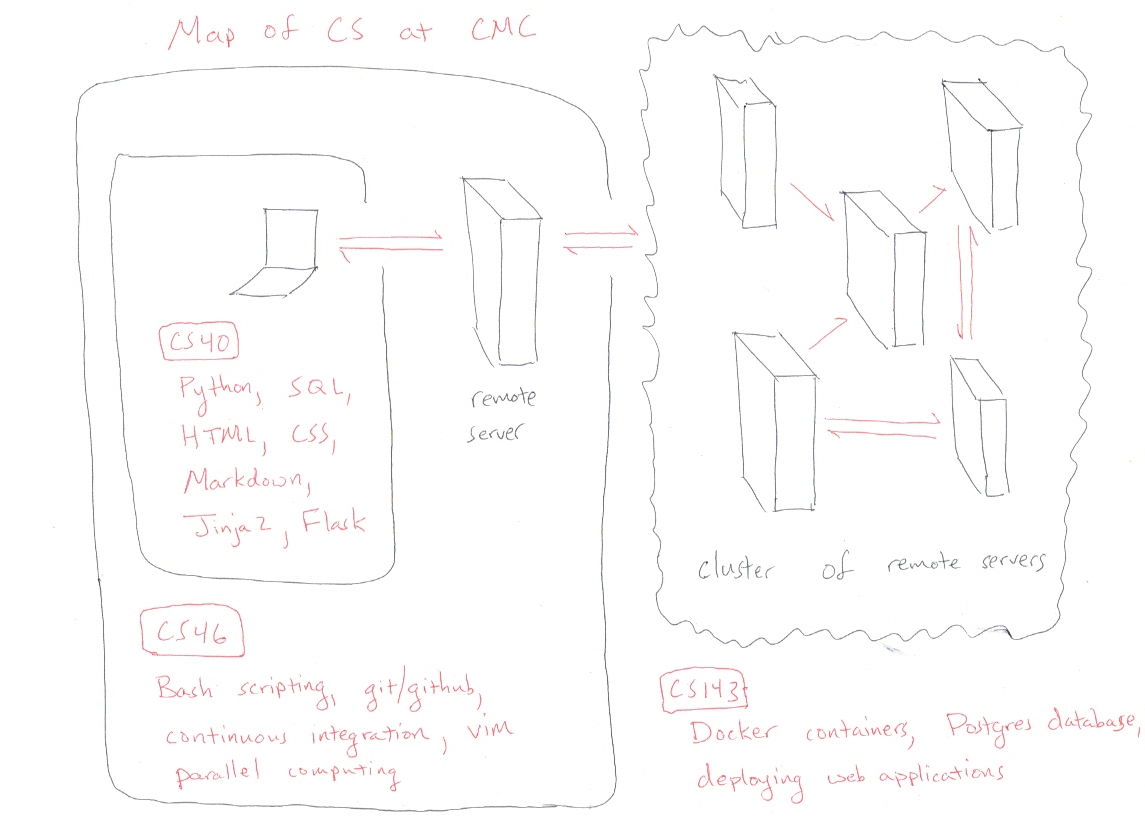 Map of CS at CMC
CS40
Python, SQL,
HTML, CSS,
Markdown,
Jinja2, Flask
remote
server
CS46
Bash scripting, git/github,
continuous integration, vim
parallel computing
cluster of remote servers
CS143
Docker containers, Postgres database,
deploying web applications